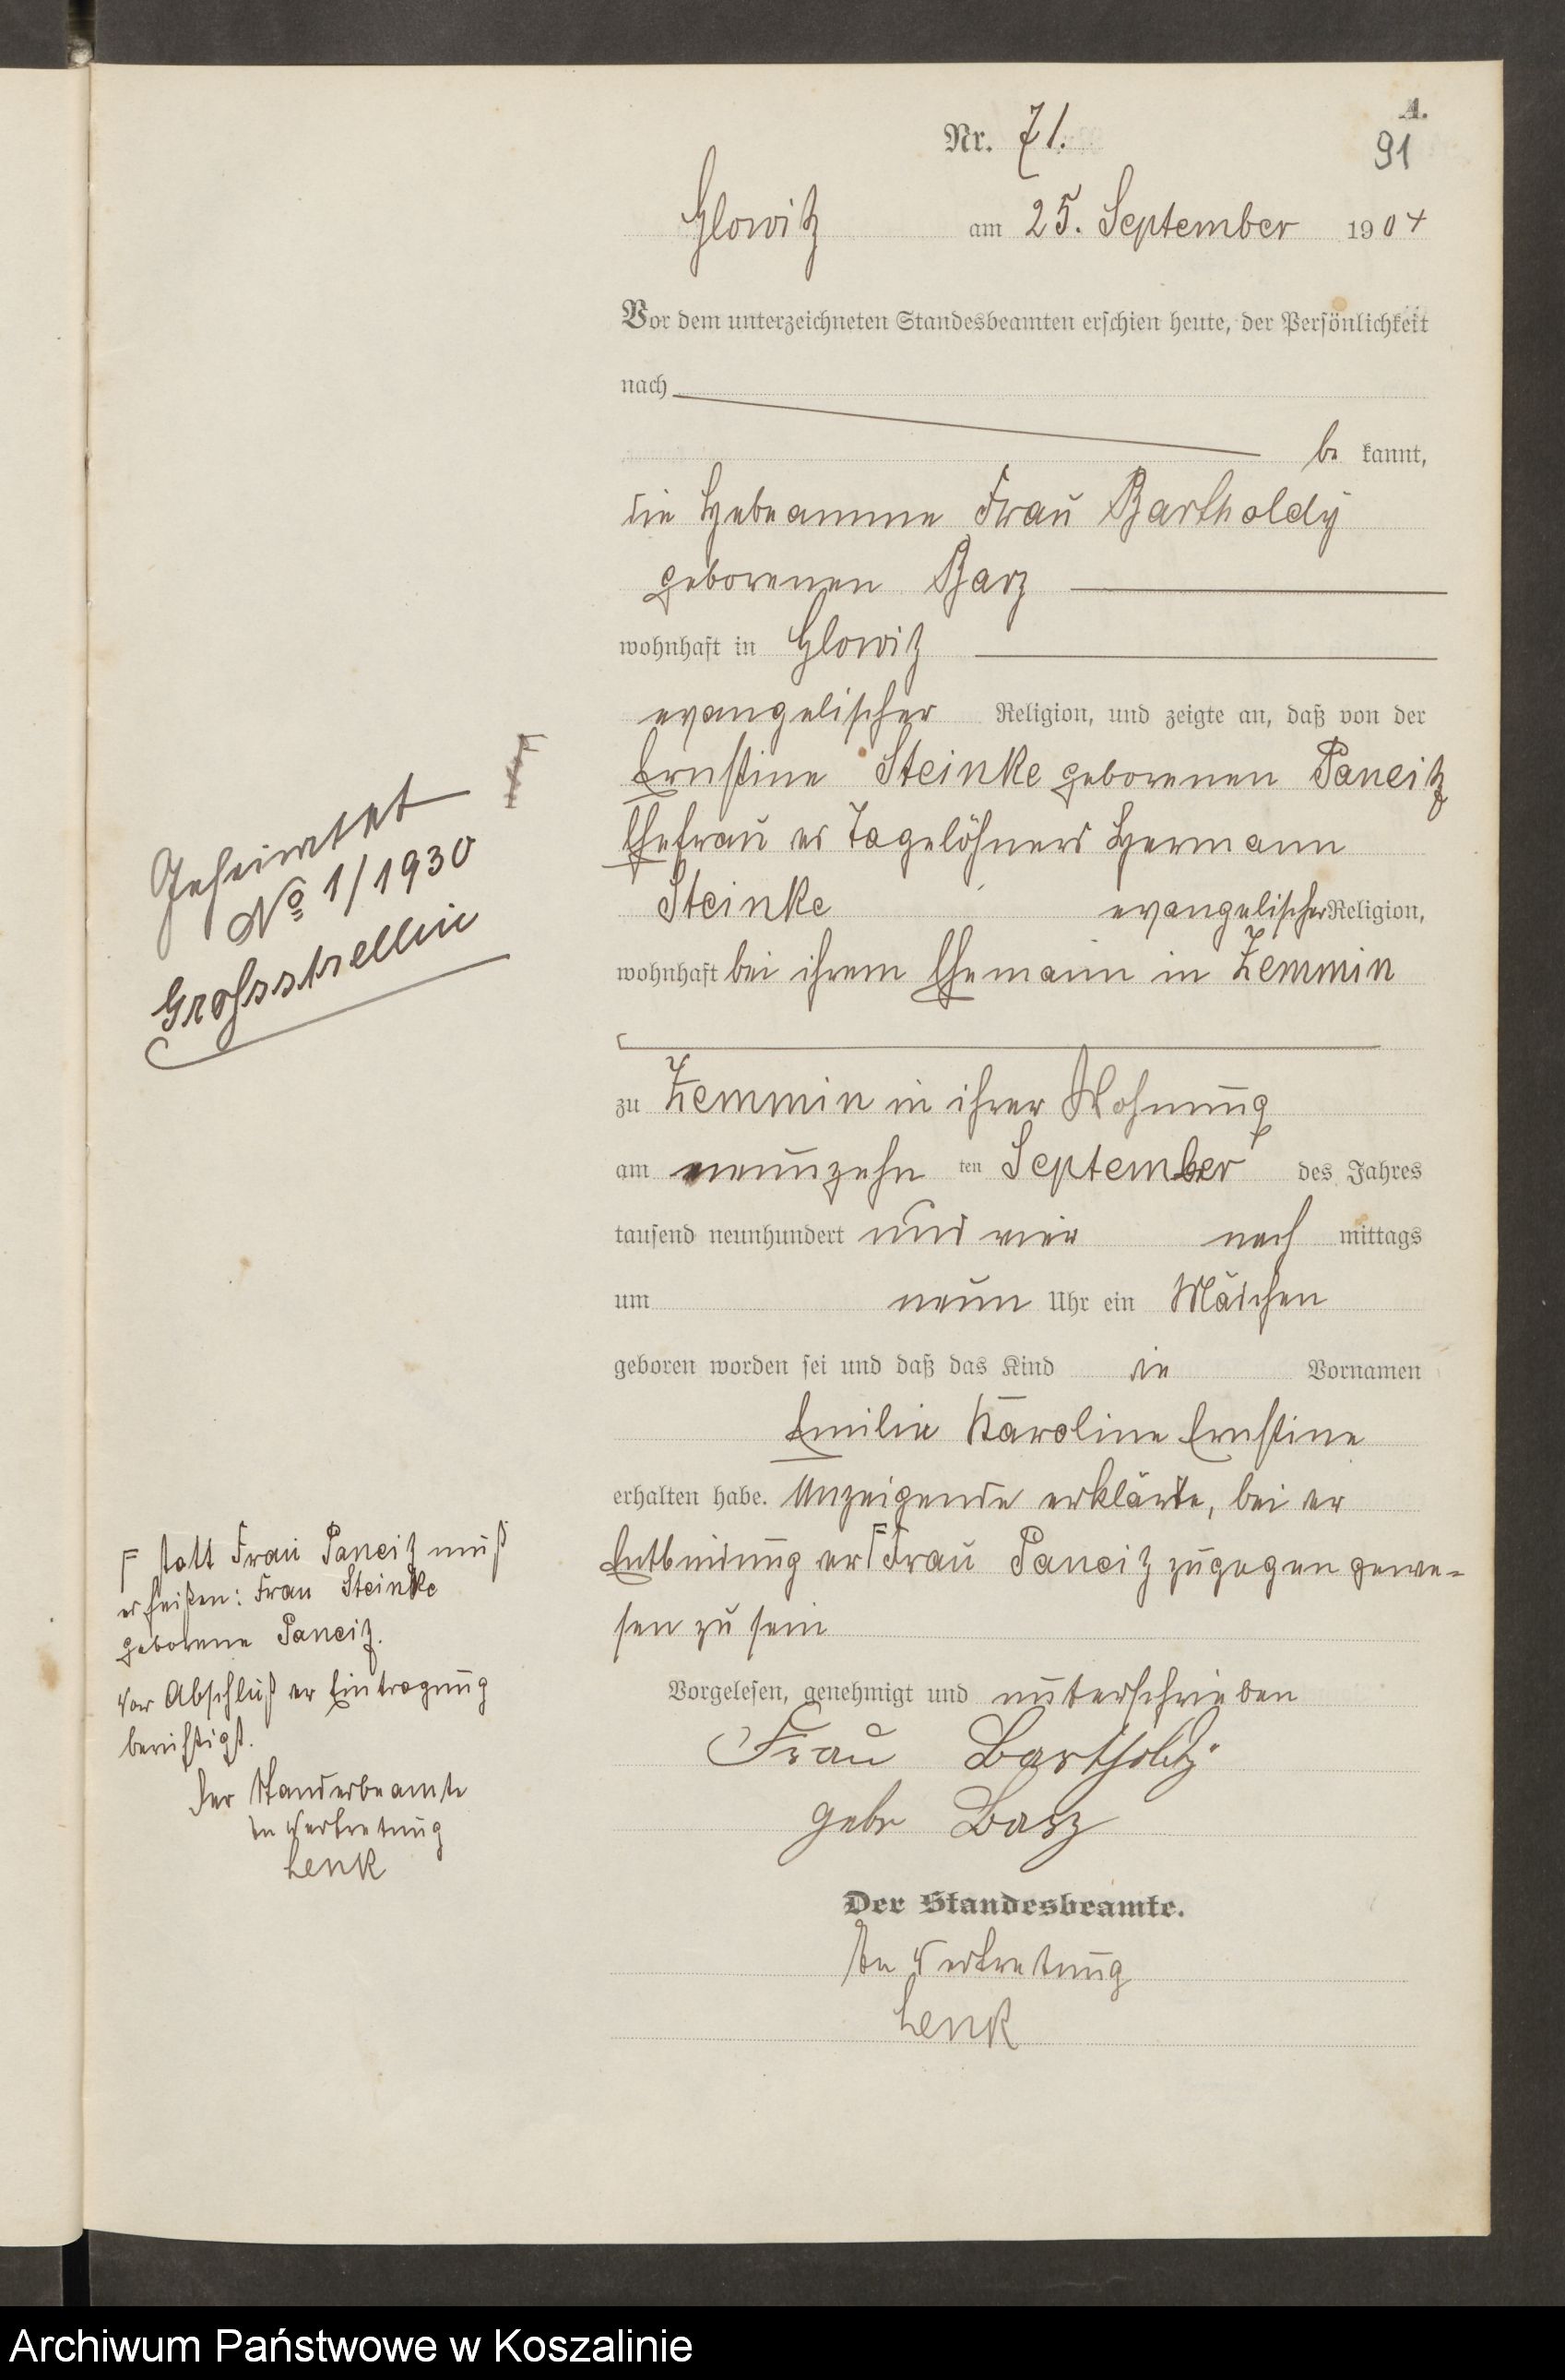 A.
Nr. 71.
91
Glowitz am 25. September 1904
Vor dem unterzeichneten Standesbeamten erschien heute, der Persönlichkeit
nach
be kannt,
die Hebeamme Frau Bartholdy
geborenen Barz
wohnhaft in Glowitz
evangelischer Religion, und zeigte an, daß von der
Ernstine Steinke geborenen Paneitz
Ehefrau des Tagelöhners Hermann
Steinke evangelischer Religion,
wohnhaft bei ihrem Ehemann in Zemmin
zu Zemmin in ihrer Wohnung
am neunzehn ten September des Jahres
tausend neunhundert und vier nach mittags
um neun Uhr ein Mädchen
geboren worden sei und daß das Kind die Vornamen
Emilie Karoline Ernstine
erhalten habe. Anzeigende erklärte, bei der
Entbindung der F Frau Paneitz zugegen gewe-
sen zu sein
Vorgelesen, genehmigt und unterschrieben
Frau Bartholdy
gebr Barz
Der Standesbeamte.
In Vertretung
Lenk
F
Geheiratet
No 1/1930
Grossstrellin
F statt Frau Paneitz muß
es heißen: Frau Steinke
geborene Paneitz.
Vor Abschluß der Eintragung
berichtigt.
Der Standesbeamte
In Vertretung
Lenk
Archiwum Państwowe w Koszalinie